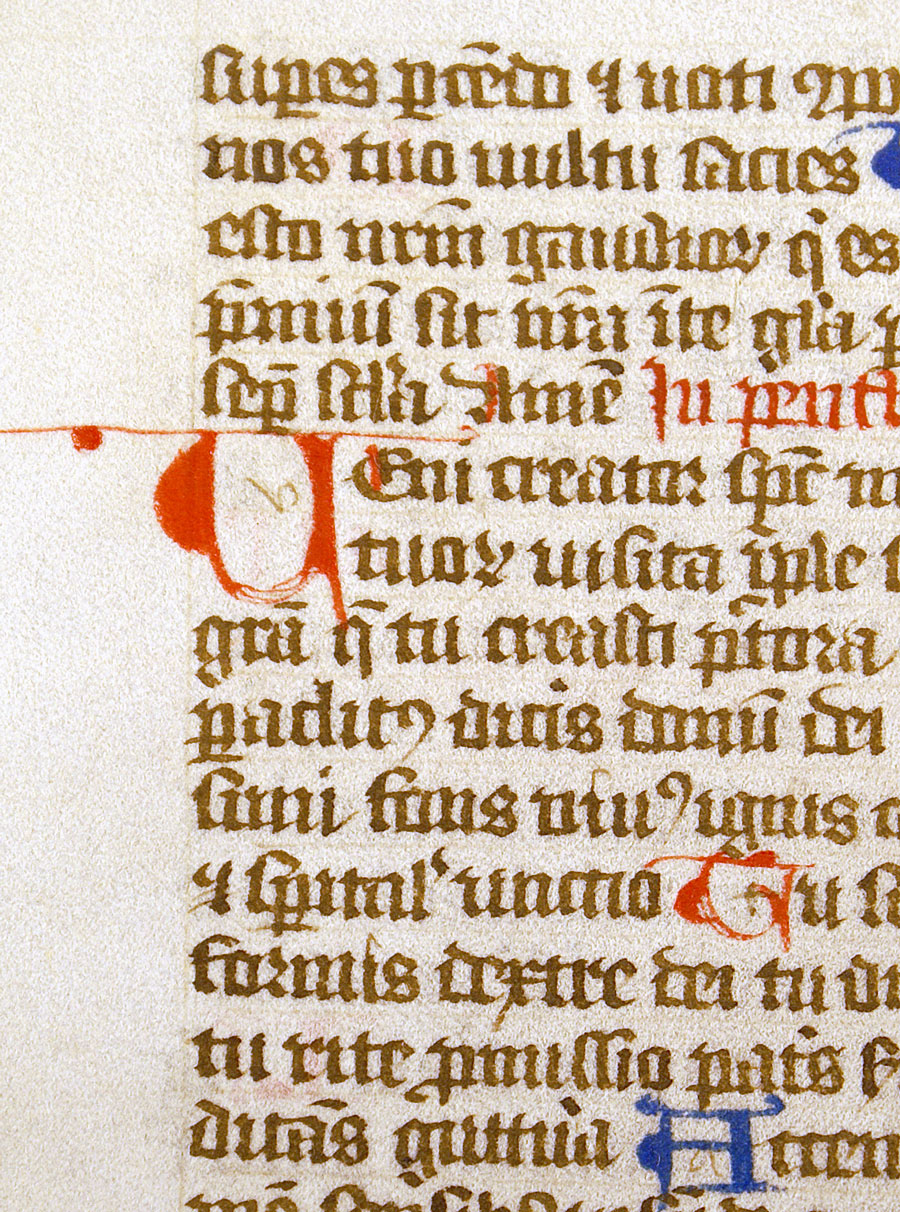 supes ꝑcēdo ⁊ uoti ꝯpo
nos tuo uultu sacies
esto nr̄m gaudioꝝ q̇ es
p̄miū sit nr̄a īte gl̓a ꝑ
sep̄ scl̓a Amē In penta
Ueni creator sp̄c m
tuoꝝ uisita īple s
grā q̄ tu creasti p̄tora
ꝑaclitꝰ dicis donū dei
simi fons uiuꝰ ignis c
⁊ sp̄ital̓ unctio Tu se
formis dextre dei tu di
tu rite ꝓmissio pat̓s
ditās guttura Accen